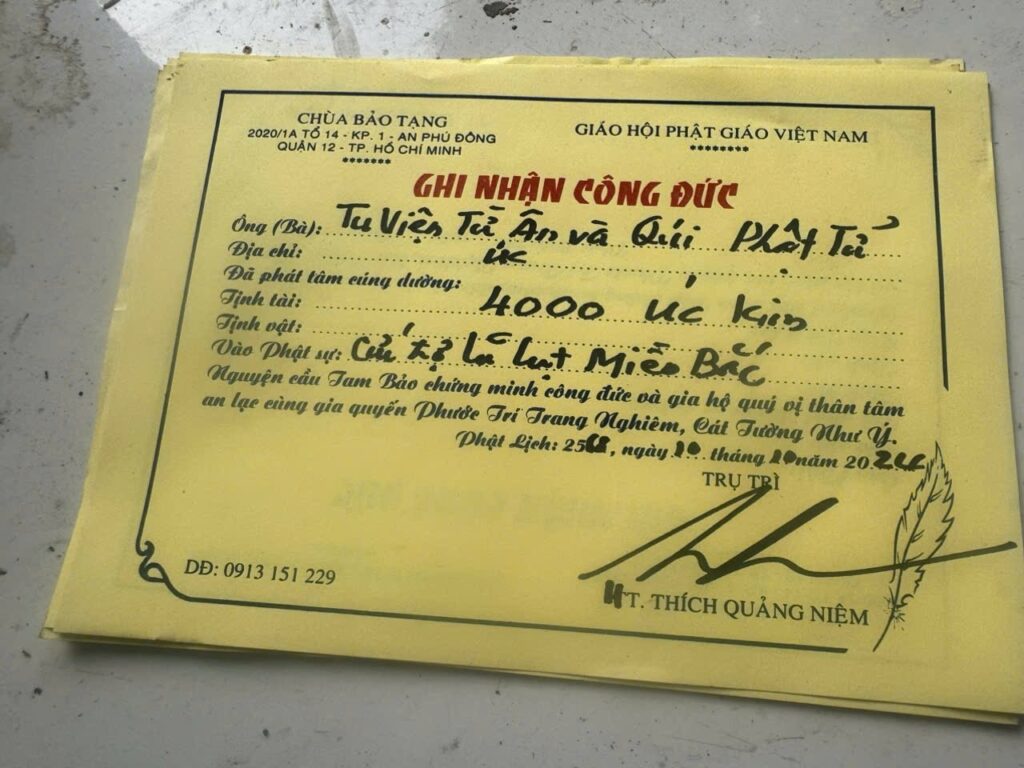 CHÙA BẢO TẠNG
2020/1A TỔ 14 - KP. 1 - AN PHÚ ĐÔNG
QUẬN 12 - TP. HỒ CHÍ MINH
*******
GIÁO HỘI PHẬT GIÁO VIỆT NAM
********
GHI NHẬN CÔNG ĐỨC
Ông (Bà): Tu Viện Từ Ân và Quí Phật Tử
Địa chỉ: úc
Đã phát tâm cúng dường:
Tịnh tài: 4000 Úc kim
Tịnh vật:
Vào Phật sự: Cứu trợ lũ lụt Miền Bắc
Nguyện cầu Tam Bảo chứng minh công đức và gia hộ quý vị thân tâm
an lạc cùng gia quyến Phước Trí Trang Nghiêm, Cát Tường Như Ý.
Phật Lịch: 2568, ngày 10 tháng 10 năm 2024
TRỤ TRÌ
DĐ: 0913 151 229
HT. THÍCH QUẢNG NIỆM